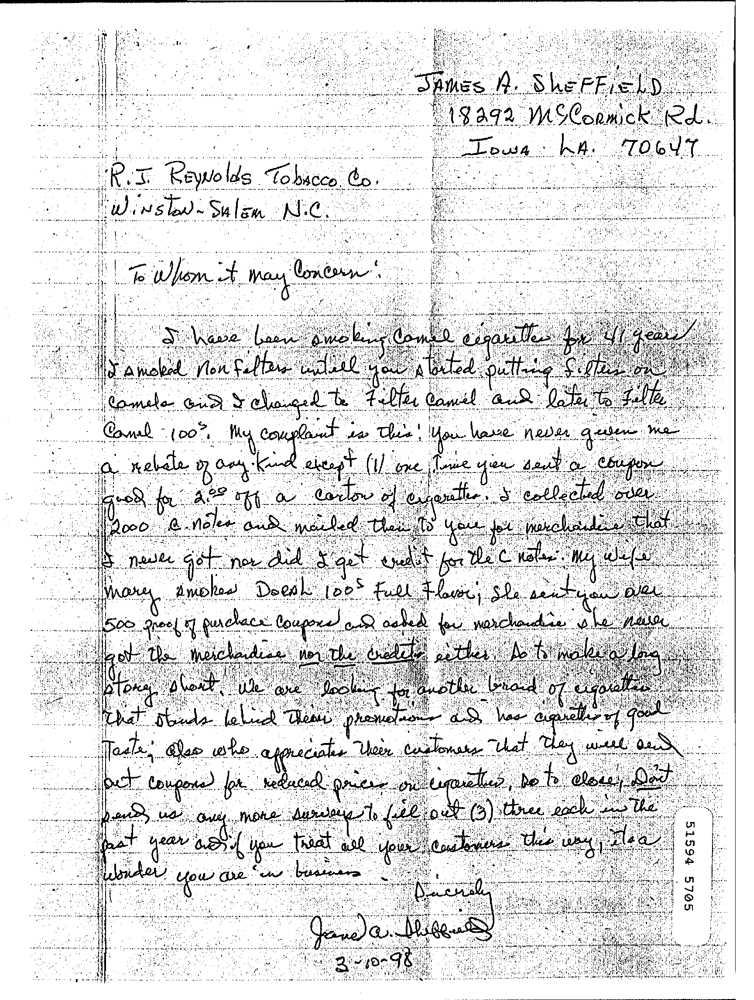 JAMES A. SHEFFIELD
18292 McCORMICK Rd.
IOWA LA. 70647
R.J. REYNOLDS TOBACCO Co.
WINSTON-SALEM N.C.
To Whom it may Concern:
I have been smoking Camel cigarettes for 41 years
I smoked Non filters untill you started putting filters on
Camels and I changed to Filter Camel and later to Filter
Camel 100s. My complaint is this! You have never given me
a rebate of any kind except (1) one time you sent a coupon
good for 2.00 off a carton of cigarettes. I collected over
2000 C. notes and mailed them to you for merchandise that
I never got nor did I get credit for the C notes. My wife
Mary smokes DORAL 100s Full Flavor; She sent you over
500 proof of purchace coupons and asked for merchandise she never
got the merchandise nor the credits either. So to make a long
story short, we are looking for another brand of cigarettes
that stands behind their promotions and has cigarettes of good
Taste; also who appreciates their customers that they will send
out coupons for reduced prices on cigarettes, so to close, Don't
send us any more surveys to fill out (3) three each in the
past year and if you treat all your customers this way, its a
wonder you are in business.
Sincerely
James A. Sheffield
3-10-98
51594 5705